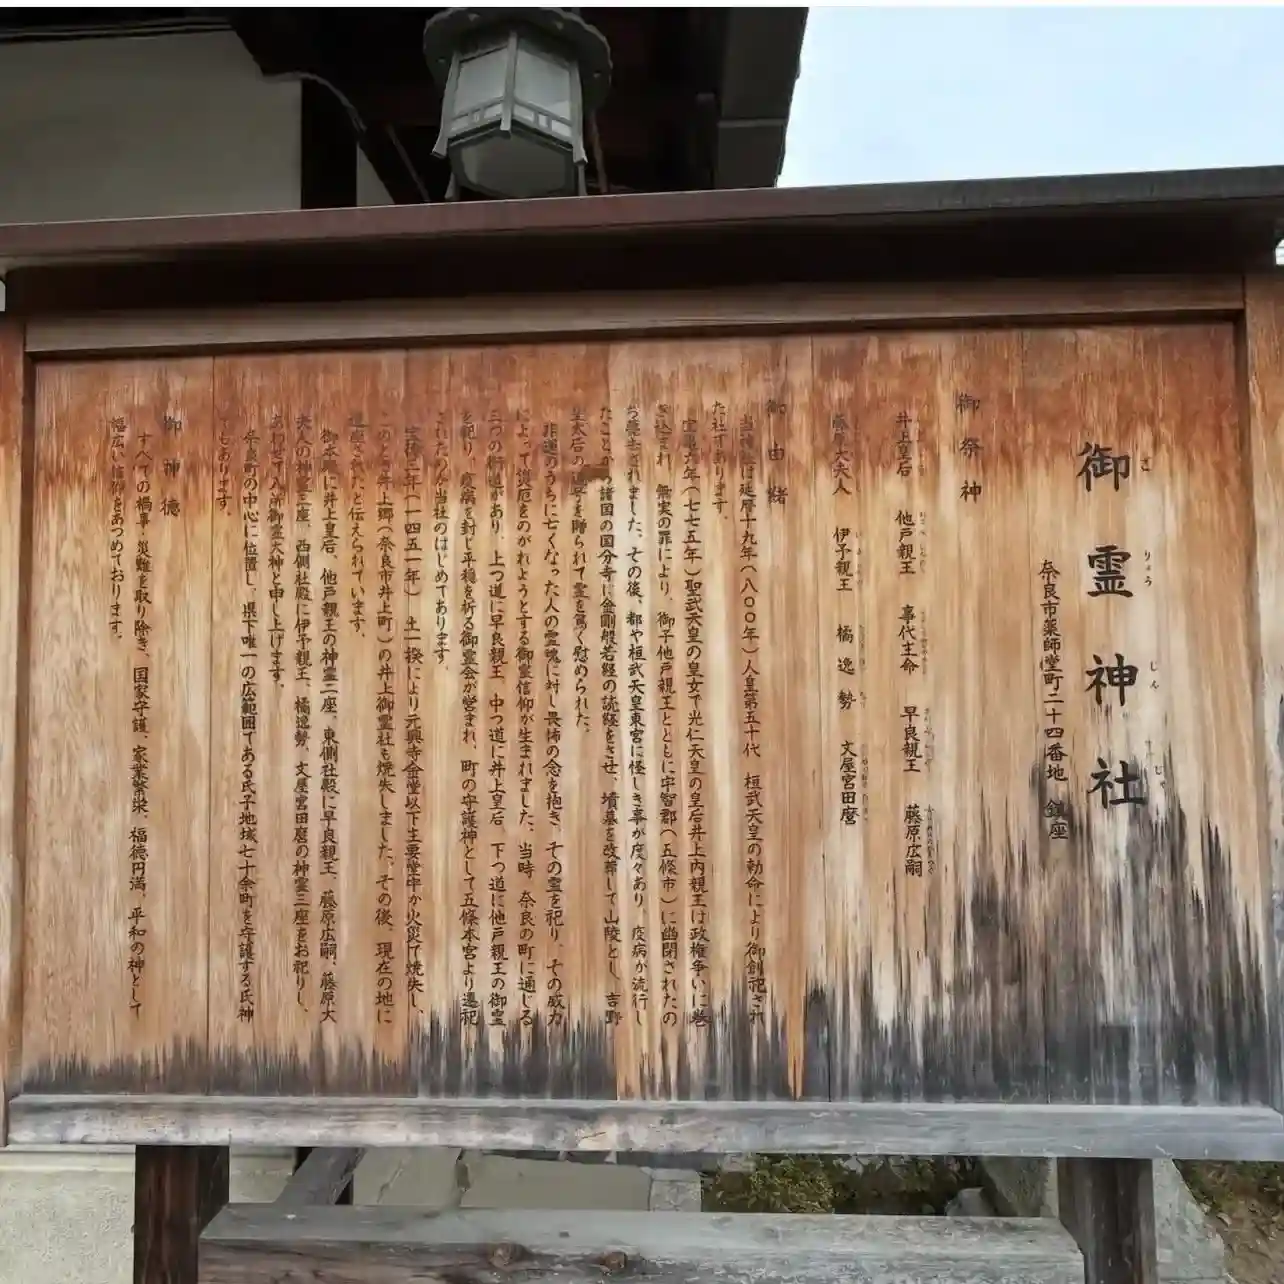 御霊神社
ごりょうじんじゃ
奈良市薬師堂町二十四番地　鎮座
御祭神
井上皇后　他戸親王　事代主命　早良親王　藤原広嗣
藤原大夫人　伊予親王　橘逸勢　文屋宮田麿
御由緒
当神社は延暦十九年（八〇〇年）人皇第五十代　桓武天皇の勅命により御創祀され
た社であります。
宝亀六年（七七五年）聖武天皇の皇女で光仁天皇の皇后井上内親王は政権争いに巻
き込まれ、無実の罪により、御子他戸親王とともに宇智郡（五條市）に幽閉されたの
ち薨去されました。その後、都や桓武天皇東宮に怪しき事が度々あり、疫病が流行し
たことから諸国の国分寺に金剛般若経の読経をさせ、墳墓を改葬して山陵とし、吉野
皇太后の追号を贈られて霊を篤く慰められた。
非運のうちに亡くなった人の霊魂に対し畏怖の念を抱き、その霊を祀り、その威力
によって災厄をのがれようとする御霊信仰が生まれました。当時、奈良の町に通じる
三つの街道があり、上つ道に早良親王、中つ道に井上皇后、下つ道に他戸親王の御霊
を祀り、疫病を封じ平穏を祈る御霊会が営まれ、町の守護神として五條本宮より遷祀
されたのが当社のはじめであります。
宝徳三年（一四五一年）土一揆により元興寺金堂以下主要堂宇が火災で焼失し、
このとき井上郷（奈良市井上町）の井上御霊社も焼失しました。その後、現在の地に
遷座されたと伝えられています。
御本殿に井上皇后、他戸親王の神霊二座、東側社殿に早良親王、藤原広嗣、藤原大
夫人の神霊三座、西側社殿に伊予親王、橘逸勢、文屋宮田麿の神霊三座をお祀りし、
あわせて八所御霊大神と申し上げます。
奈良町の中心に位置し、県下唯一の広範囲である氏子地域七十余町を守護する氏神
でもあります。
御神徳
すべての禍事・災難を取り除き、国家守護、家業繁栄、福徳円満、平和の神として
幅広い信仰をあつめております。